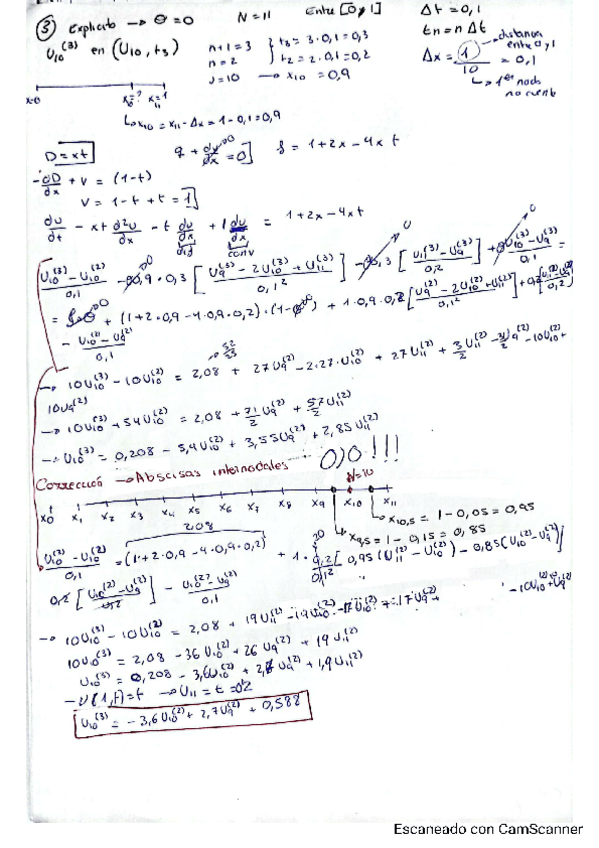 ③ Explicito → θ=0 N=11 Entre [0 y 1] Δt = 0,1
U10^(3) en (U10, t3) n+1=3 } t3 = 3·0,1=0,3 tn = n Δt
n=2 } t2 = 2·0,1=0,2 Δx = 1/10 = 0,1 → distancia entre 0 y 1
J=10 → x10 = 0,9 ↳ 1er nodo no cuenta
x=0 x10=? x11=1
↳ x10 = x11 - Δx = 1-0,1 = 0,9
D = xt q + du/dx = 0] f = 1+2x-4xt
-dD/dx + v = (1-t)
v = 1-t+t = 1
du/dt - xt d²u/dx - t du/dx + 1 du/dx = 1+2x-4xt
dif conv
(U10^(3) - U10^(2))/0,1 - θ0,9·0,3 [(U9^(3) - 2U10^(3) + U11^(3))/0,1²] - θ0,3 [(U11^(3) - U9^(3))/0,2] + θ(U10^(3) - U9^(3))/0,1 =
= f·θ + (1+2·0,9-4·0,9·0,2)·(1-θ) + 1·0,9·0,2[(U9^(2) - 2U10^(2) + U11^(2))/0,1²] + 0,2[(U11^(2) - U9^(2))/0,2]
- (U10^(2) - U9^(2))/0,1
→ 10U10^(3) - 10U10^(2) = 2,08 + 27U9^(2) - 2·27·U10^(2) + 27U11^(2) + 3/2 U11^(2) - 3/2 U9^(2) - 10U10^(2) +
10U9^(2)
→ 10U10^(3) + 54U10^(2) = 2,08 + 71/2 U9^(2) + 57/2 U11^(2)
→ U10^(3) = 0,208 - 5,4U10^(2) + 3,55U9^(2) + 2,85U11^(2)
Corrección → Abscisas internodales OJO!!!
N=10
x0 x1 x2 x3 x4 x5 x6 x7 x8 x9 x10 x11
x10,5 = 1-0,05 = 0,95
x9,5 = 1-0,15 = 0,85
208
(U10^(3) - U10^(2))/0,1 = (1+2·0,9-4·0,9·0,2) + 1·0,2/0,1² [0,95(U11^(2) - U10^(2)) - 0,85(U10^(2) - U9^(2))]
0,2 [(U11^(2) - U9^(2))/0,2] - (U10^(2) - U9^(2))/0,1
→ 10U10^(3) - 10U10^(2) = 2,08 + 19U11^(2) - 19U10^(2) - 17U10^(2) + 17U9^(2) - 10U10^(2) + U9^(2)
10U10^(3) = 2,08 - 36U10^(2) + 26U9^(2) + 19U11^(2)
U10^(3) = 0,208 - 3,6U10^(2) + 2,7U9^(2) + 1,9U11^(2)
- U(1,t)=t → U11 = t = 0,2
U10^(3) = -3,6U10^(2) + 2,7U9^(2) + 0,588
Escaneado con CamScanner